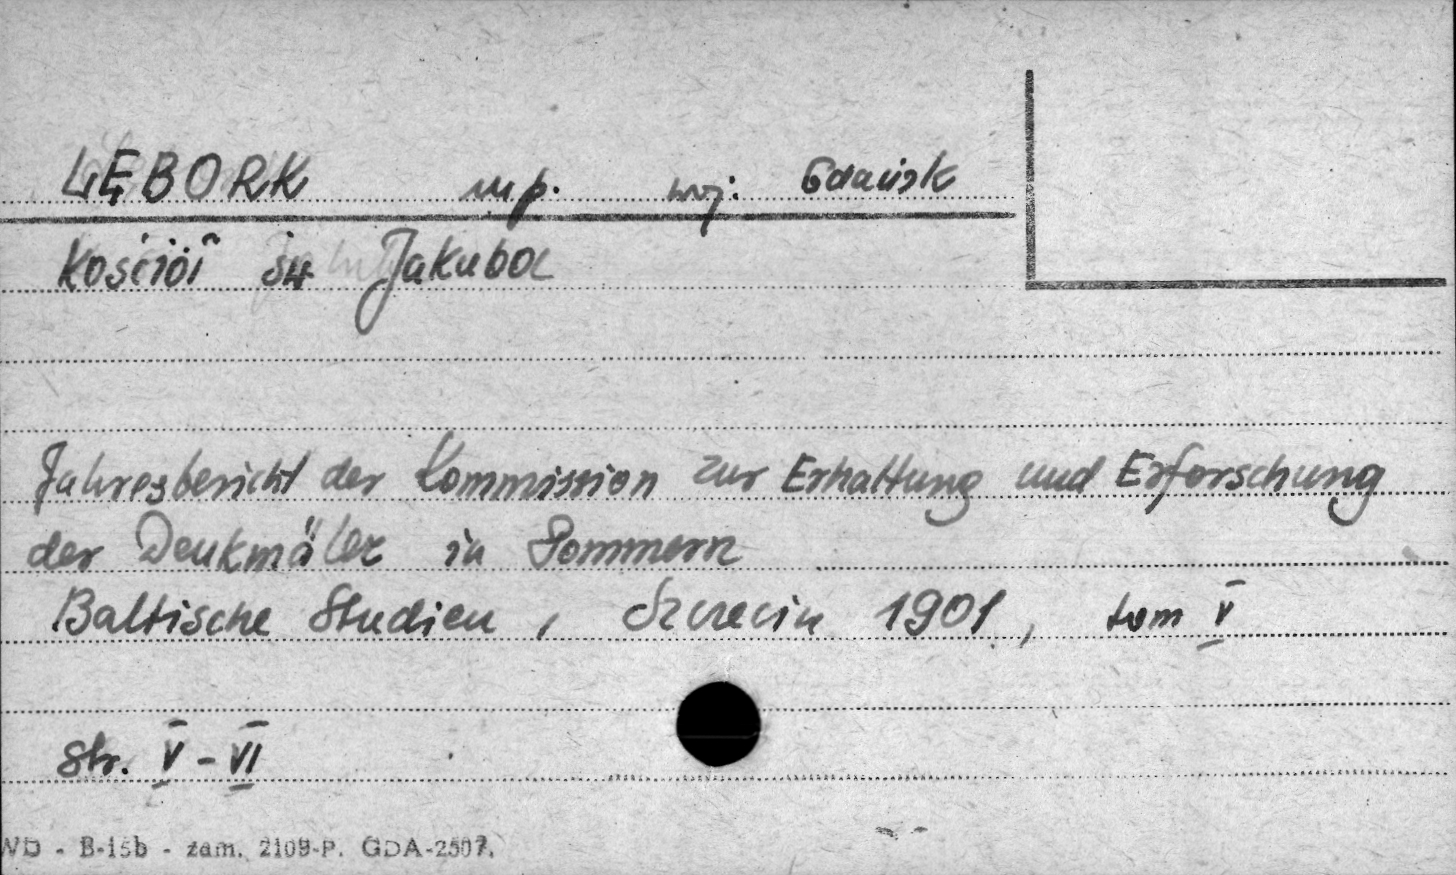 LĘBORK m.p. woj. Gdańsk
Kościół św Jakuba
Jahresbericht der Kommission zur Erhaltung und Erforschung
der Denkmäler in Pommern
Baltische Studien, Szczecin 1901, tom V
Str. V - VI
WD - B-15b - zam. 2109-P. GDA-2507.